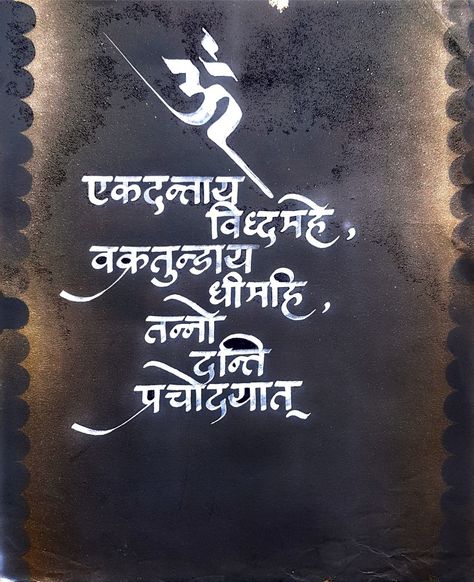 ॐ
एकदन्ताय
विध्दमहे,
वक्रतुन्डाय
धीमहि,
तन्नो
दन्ति
प्रचोदयात्